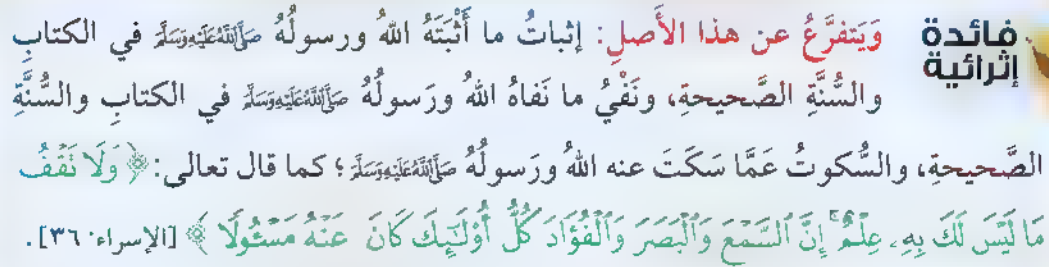 فائدة إثرائية
وَيَتفرَّعُ عن هذا الأَصلِ: إثباتُ ما أَثْبَتَهُ اللهُ ورسولُهُ صَلَّىٰللَّهُعَلَيْهِوَسَلَّمَ في الكتابِ
والسُّنَّةِ الصَّحيحةِ، ونَفْيُ ما نَفاهُ اللهُ ورَسولُهُ صَلَّىٰللَّهُعَلَيْهِوَسَلَّمَ في الكتابِ والسُّنَّةِ
الصَّحيحةِ، والسُّكوتُ عَمَّا سَكَتَ عنه اللهُ ورَسولُهُ صَلَّىٰللَّهُعَلَيْهِوَسَلَّمَ؛ كما قال تعالى: ﴿وَلَا تَقْفُ
مَا لَيْسَ لَكَ بِهِۦ عِلْمٌ ۚ إِنَّ ٱلسَّمْعَ وَٱلْبَصَرَ وَٱلْفُؤَادَ كُلُّ أُو۟لَـٰٓئِكَ كَانَ عَنْهُ مَسْـُٔولًا﴾ [الإسراء: ٣٦].